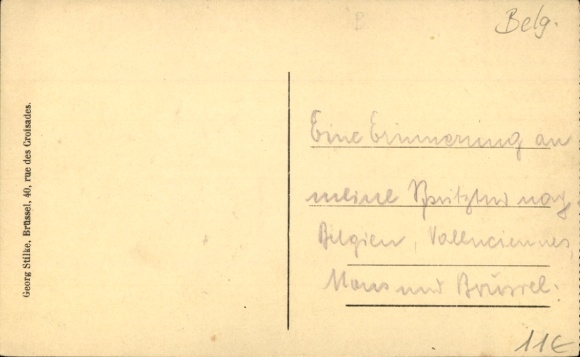 Belg.
Georg Stilke, Brüssel, 40, rue des Croisades.
Eine Erinnerung an
meine
Belgien, Vallenciennes,
Mons und Brüssel.
11€